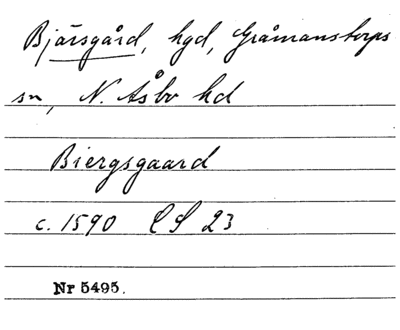 Bjärsgård, hgd, Gråmanstorps
sn, N. Åsbo hd
Biergsgaard
c. 1590 CS 23
Nr 5495.